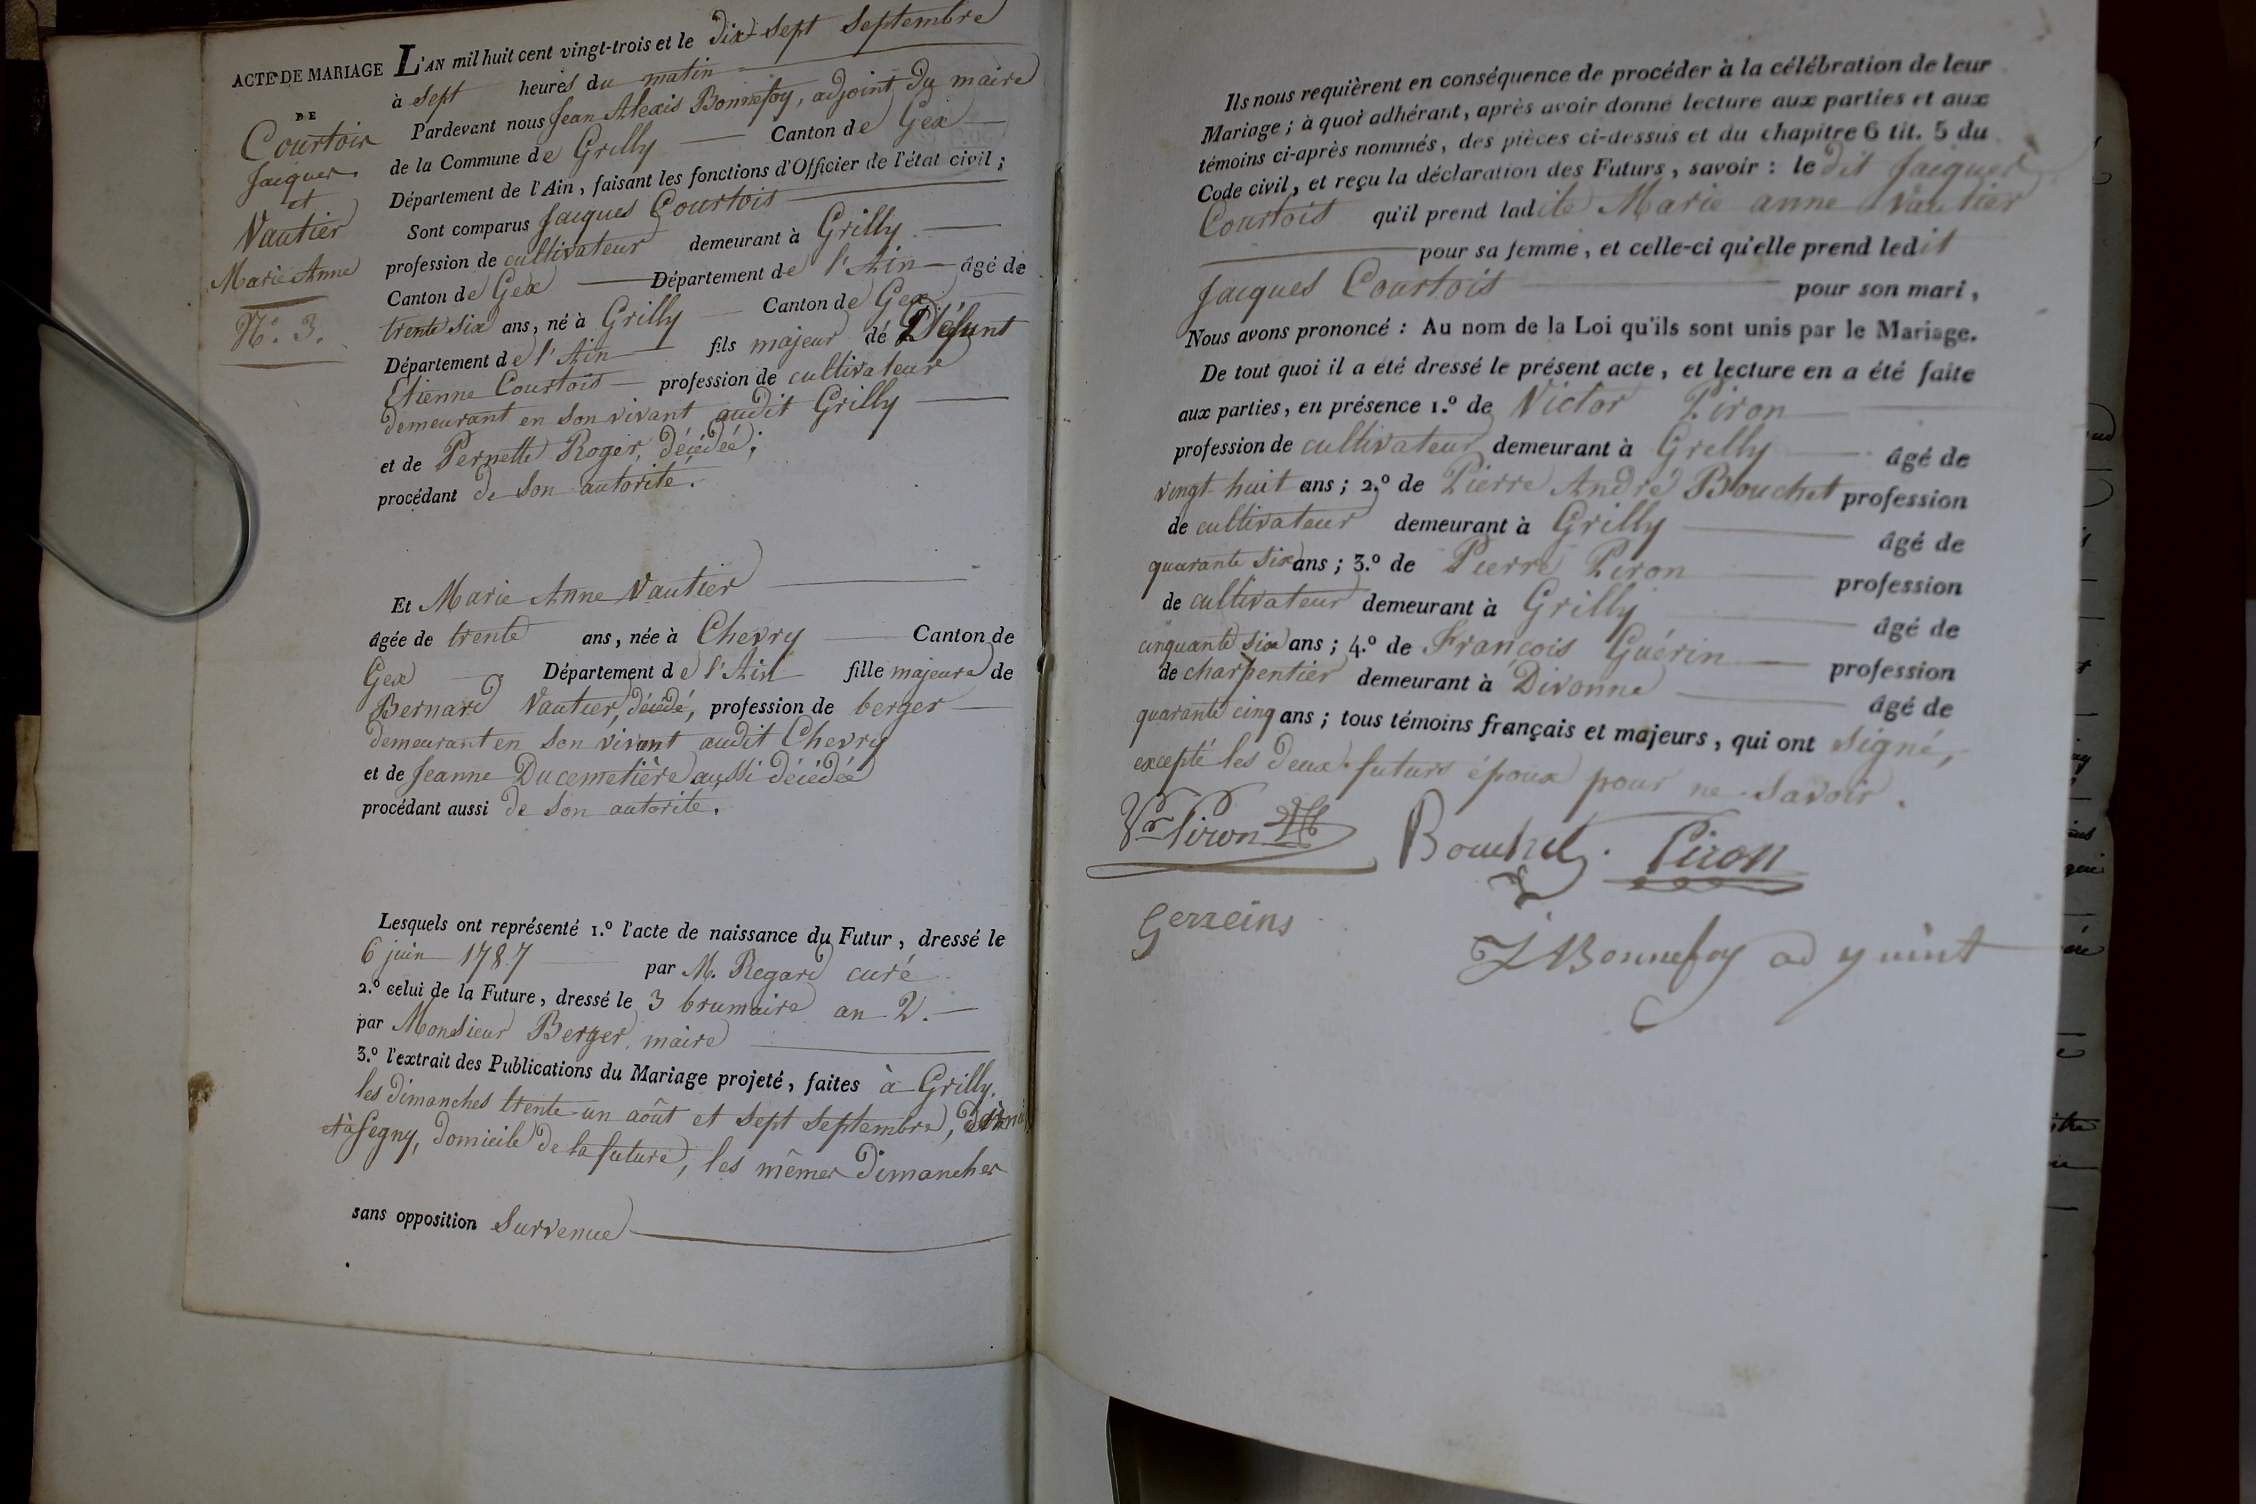 ACTE DE MARIAGE
DE
Courtois
Jacques
et
Vautier
Marie Anne
N.o 3.
L'AN mil huit cent vingt-trois et le dix-sept septembre
à sept heures du matin
Pardevant nous Jean Alexis Bonnefoy, adjoint du maire
de la Commune de Grilly Canton de Gex
Département de l'Ain, faisant les fonctions d'Officier de l'état civil;
Sont comparus Jacques Courtois
profession de cultivateur demeurant à Grilly
Canton de Gex Département de l'Ain âgé de
trente six ans, né à Grilly Canton de Gex
Département de l'Ain fils majeur de Défunt
Etienne Courtois profession de cultivateur
demeurant en son vivant audit Grilly
et de Pernette Roger, décédée;
procédant de son autorité.
Et Marie Anne Vautier
âgée de trente ans, née à Chevry Canton de
Gex Département de l'Ain fille majeure de
Bernard Vautier, décédé, profession de berger
demeurant en son vivant audit Chevry
et de Jeanne Ducemetière aussi décédée
procédant aussi de son autorité.
Lesquels ont représenté 1.º l'acte de naissance du Futur, dressé le
6 juin 1787 par M. Regard curé
2.º celui de la Future, dressé le 3 brumaire an 2.
par Monsieur Berger, maire
3.º l'extrait des Publications du Mariage projeté, faites à Grilly,
les dimanches trente-un août et sept septembre,
et à Segny, domicile de la future, les mêmes Dimanches
sans opposition survenue
Ils nous requièrent en conséquence de procéder à la célébration de leur
Mariage; à quoi adhérant, après avoir donné lecture aux parties et aux
témoins ci-après nommés, des pièces ci-dessus et du chapitre 6 tit. 5 du
Code civil, et reçu la déclaration des Futurs, savoir: le dit Jacques
Courtois qu'il prend ladite Marie anne Vautier
pour sa femme, et celle-ci qu'elle prend ledit
Jacques Courtois pour son mari,
Nous avons prononcé: Au nom de la Loi qu'ils sont unis par le Mariage.
De tout quoi il a été dressé le présent acte, et lecture en a été faite
aux parties, en présence 1.º de Victor Piron
profession de cultivateur demeurant à Grilly âgé de
vingt-huit ans; 2.º de Pierre André Bouchet profession
de cultivateur demeurant à Grilly âgé de
quarante six ans; 3.º de Pierre Piron profession
de cultivateur demeurant à Grilly âgé de
cinquante six ans; 4.º de François Guérin profession
de charpentier demeurant à Divonne âgé de
quarante cinq ans; tous témoins français et majeurs, qui ont signé,
excepté les deux futurs époux pour ne savoir.
Vr Piron Bouchet. Piron
Gerreins
J A Bonnefoy adyuint